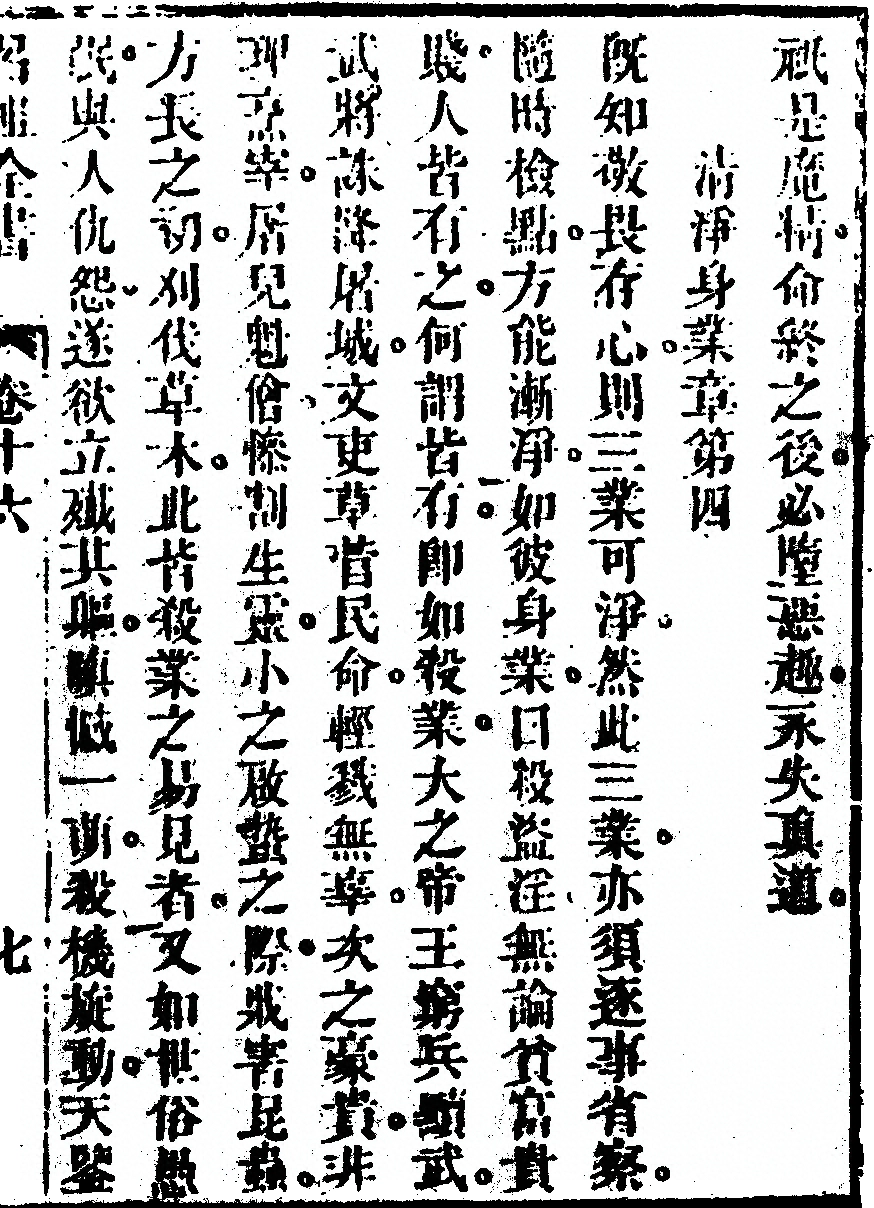 祇是魔精命終之後必墮惡趣永失真道
清淨身業章第四
既知敬畏存心則三業可淨然此三業亦須逐事省察
隨時檢點方能漸淨如彼身業曰殺盜淫無論貧富貴
賤人皆有之何謂皆有即如殺業大之帝王窮兵黷武
武將誅降屠城文吏草菅民命輕戮無辜次之豪貴非
理烹宰屠兒魁儈慘割生靈小之啟蟄之際戕害昆蟲
方長之初刈伐草木此皆殺業之易見者又如世俗愚
民與人仇怨遂欲立殲其軀瞋恨一萌殺機旋動天鑒
全書 卷十六 七